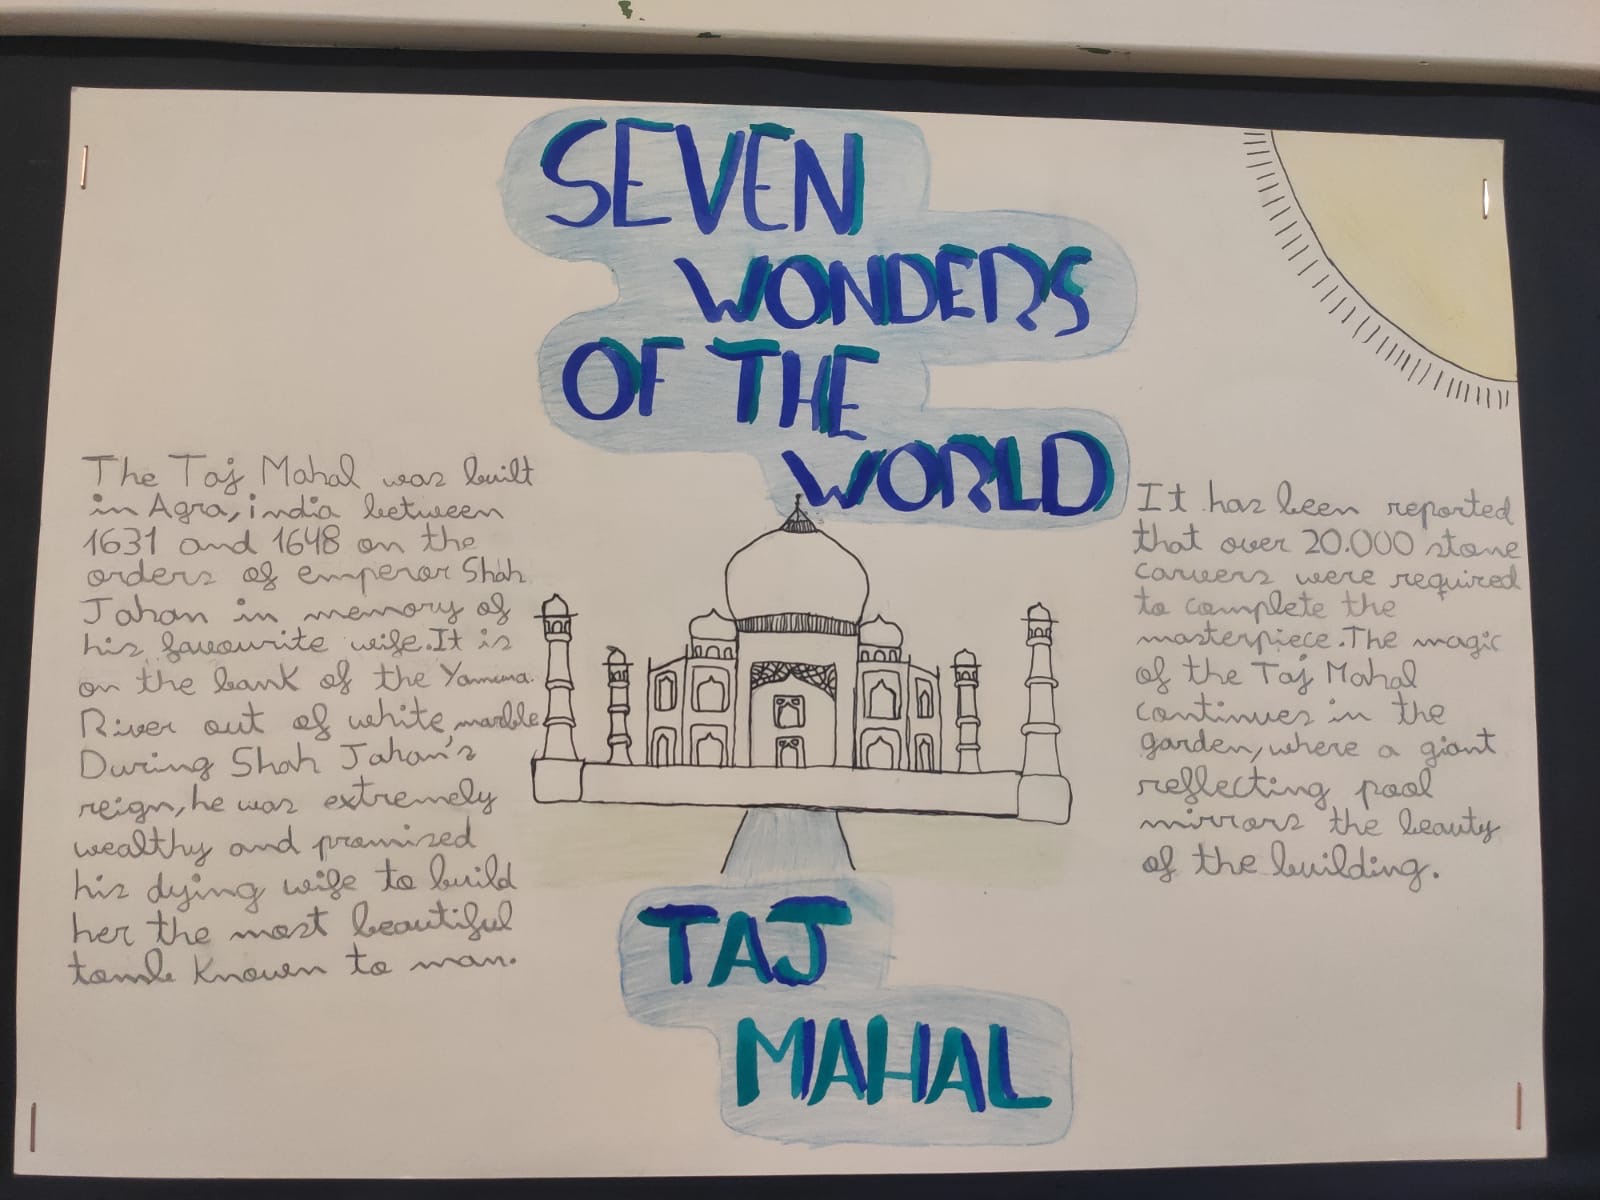 SEVEN
WONDERS
OF THE
WORLD
The Taj Mahal was built
in Agra, india between
1631 and 1648 on the
orders of emperor Shah
Jahan in memory of
his favourite wife. It is
on the bank of the Yamuna
River out of white marble
During Shah Jahan's
reign, he was extremely
wealthy and promised
his dying wife to build
her the most beautiful
tomb known to man.
It has been reported
that over 20.000 stone
carvers were required
to complete the
masterpiece. The magic
of the Taj Mahal
continues in the
garden, where a giant
reflecting pool
mirrors the beauty
of the building.
TAJ
MAHAL